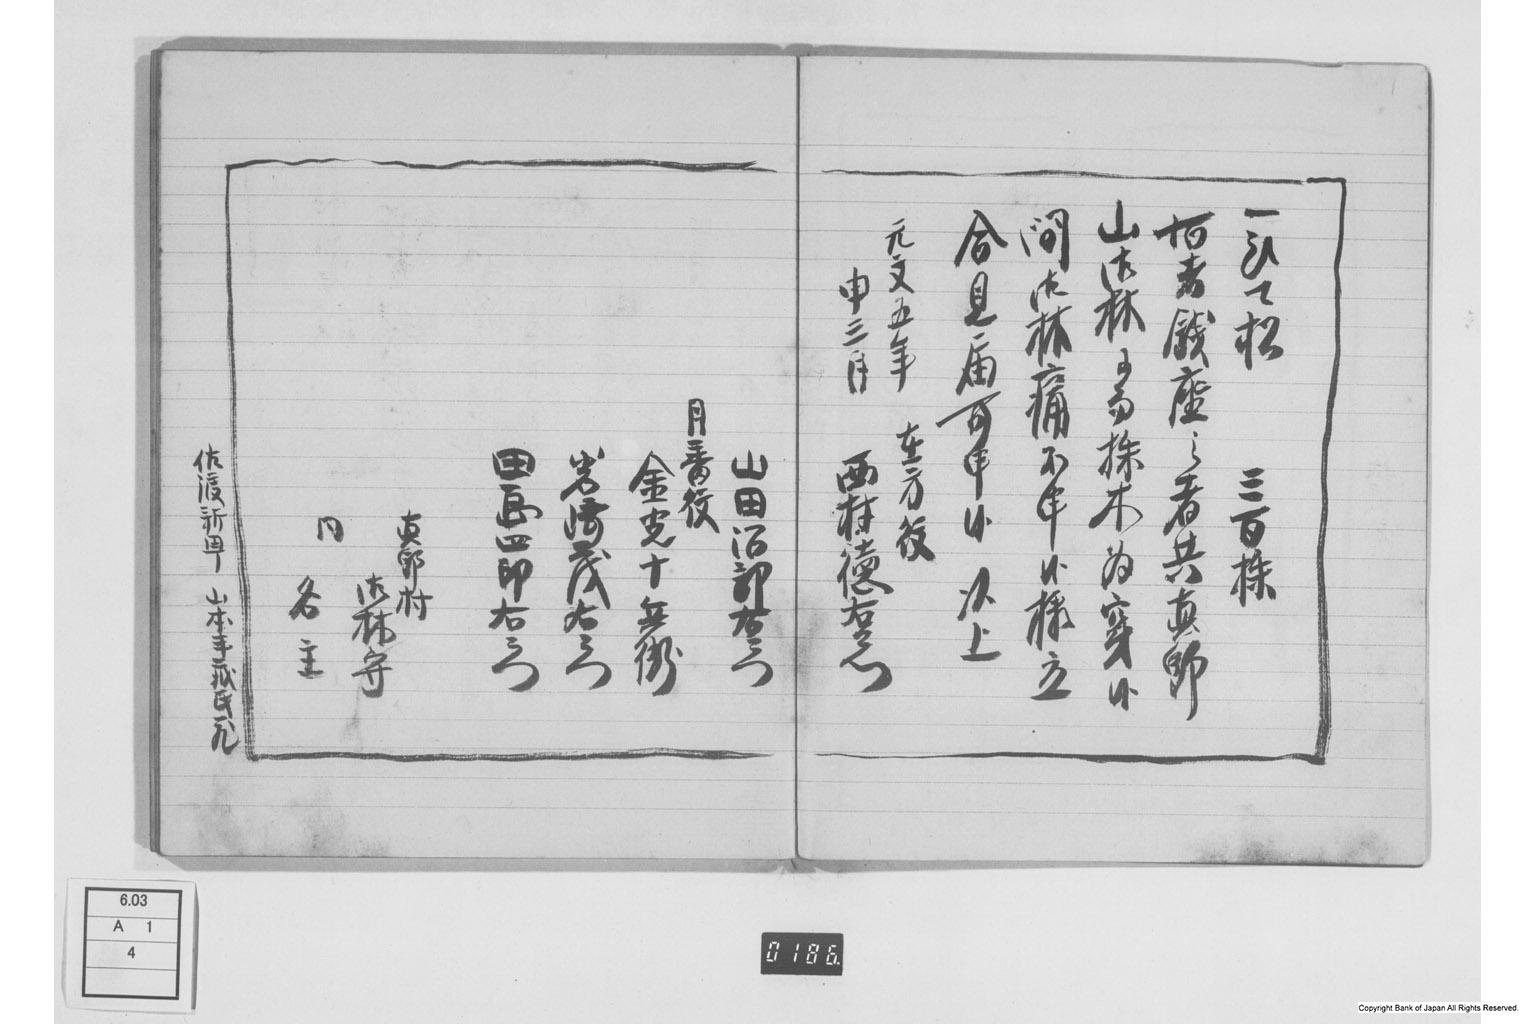 一ひて松 三百株
右者銭座之者共真師
山御林ゟ為株木為穿候
間御林痛不申候様立
合見届可申候 以上
元文五年
申三月
在方役
西村徳右衛門
山田治部右衛門
月番役
金光十兵衛
岩崎茂右衛門
田辺四郎右衛門
真師村
御林守
同
名主
佐渡新町 山本半蔵氏蔵
6.03
A 1
4
0186
Copyright Bank of Japan All Rights Reserved.